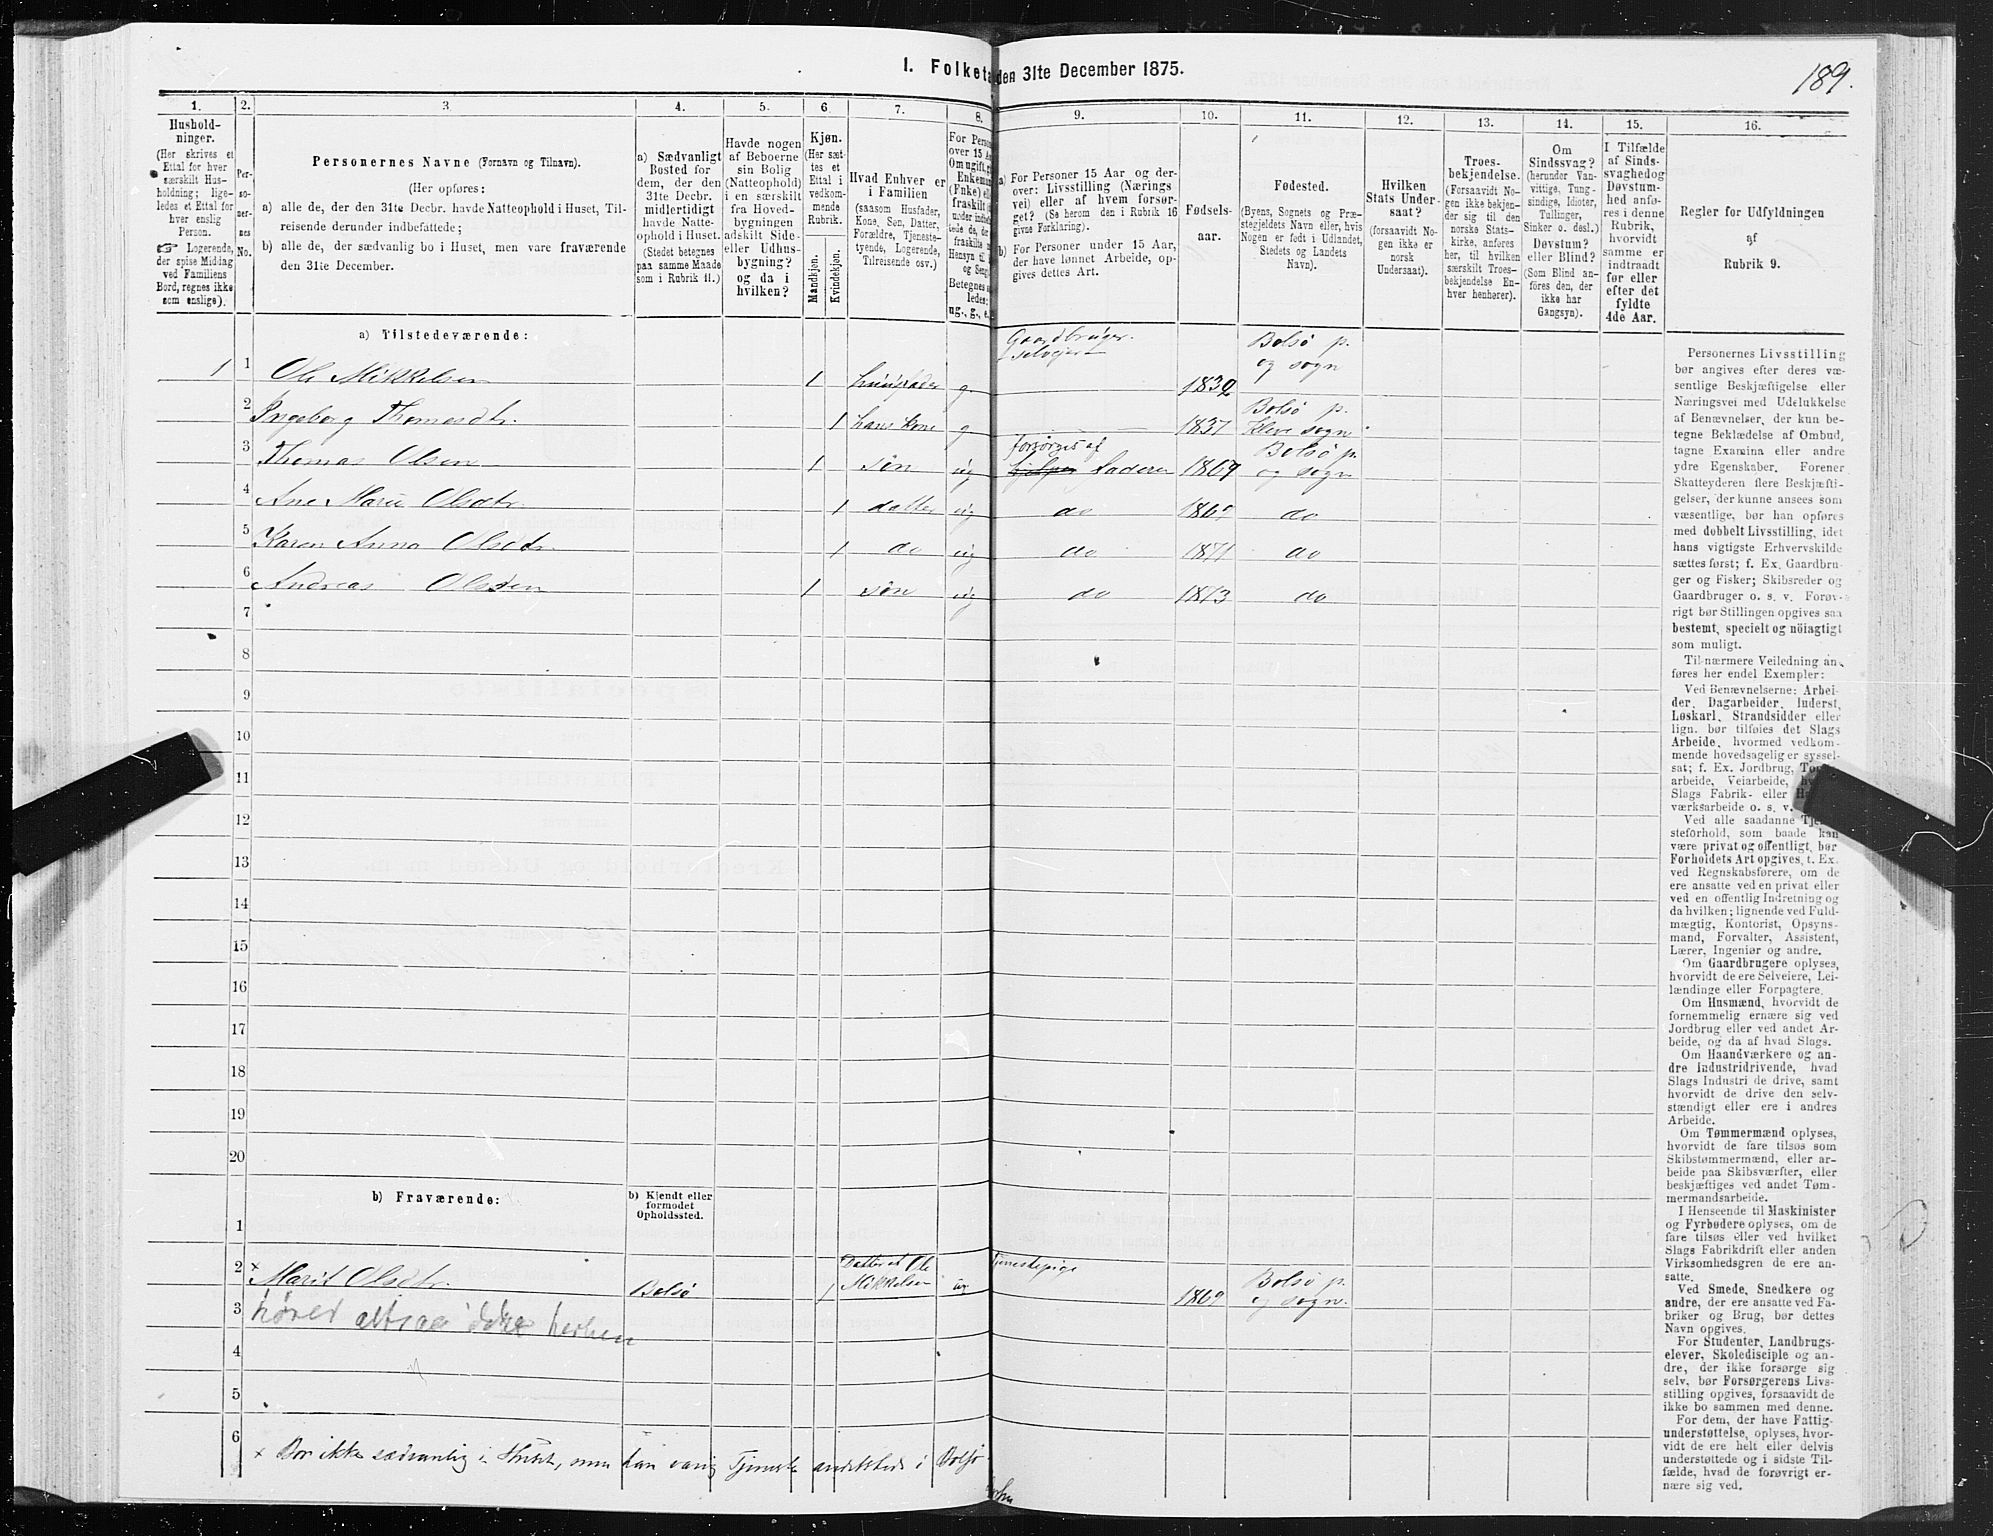 I. Folketæ den 31te December 1875.
189.
1. 2. 3. 4. 5. 6 7. 8. 9. 10. 11. 12. 13. 14. 15. 16.
Hushold-
ninger.
(Her skrives et
Ettal for hver
særskilt Hus-
holdning; lige-
ledes et Ettal for
hver enslig
Person.
Logerende,
der spise Middag
ved Familiens
Bord, regnes ikke
som enslige).
Per-
so-
ner-
nes
No.
Personernes Navne (Fornavn og Tilnavn).
(Her opføres:
a) alle de, der den 31te Decbr. havde Natteophold i Huset, Til-
reisende derunder indbefattede;
b) alle de, der sædvanlig bo i Huset, men vare fraværende
den 31te December.
a) Sædvanligt
Bosted for
dem, der den
31te Decbr.
midlertidigt
havde Natte-
ophold i Huset.
(Stedet betegnes
paa samme Maade
som i Rubrik 11.)
Havde nogen
af Beboerne
sin Bolig
(Natteophold)
i en særskilt
fra Hoved-
bygningen
adskilt Side-
eller Udhus-
bygning?
og da i
hvilken?
Kjøn.
(Her sæt-
tes et
Ettal i
vedkom-
mende
Rubrik.
Mandkjøn.
Kvindekjøn.
Hvad Enhver er
i Familien
(saasom Husfader,
Kone, Søn, Datter,
Forældre, Tjeneste-
tyende, Logerende,
Tilreisende osv.)
For Perso
over 15 Aa
Om ugift, g
Enkeman
(Fnke) el
fraskilt
under indbe
tede de, d
fraskilte
Hensyn til
og Seng
Betegnes
ledes:
ug., g., e.
a) For Personer 15 Aar og der-
over: Livsstilling (Nærings
vei) eller af hvem forsør-
get? (Se herom den i Rubrik 16
givne Forklaring).
b) For Personer under 15 Aar,
der have lønnet Arbeide, op-
gives dettes Art.
Fødsels-
aar.
Fødested.
(Byens, Sognets og Præ-
stegjeldets Navn eller, hvis
Nogen er født i Udlandet,
Stedets og Landets
Navn).
Hvilken
Stats Under-
saat?
(forsaavidt No-
gen ikke er
norsk
Undersaat).
Troes-
bekjendelse.
(Forsaavidt No-
gen ikke bekjen-
der sig til den
norske Stats-
kirke, anføres
her, til hvilken
særskilt Troes-
bekjendelse En-
hver henhører).
Om
Sindssvag?
(herunder Van-
vittige, Tung-
sindige, Idioter,
Tullinger,
Sinker o. desl.)
Døvstum?
eller Blind?
(Som Blind an-
føres den, der
ikke har
Gangsyn).
I Tilfælde
af Sinds-
svaghedog
Døvstum-
hed anfø-
res i denne
Rubrik,
hvorvidt
samme er
indtraadt
før eller
efter det
fyldte
4de Aar.
Regler for Udfyldningen
af
Rubrik 9.
a) Tilstedeværende:
1 1 Ole Mikkelsen 1 huusfader g. Gaardbruger. selveier 1832 Bolsø p. og sogn
2 Ingeborg Thomasdtr. 1 hans kone g 1837 Bolsø p. Kleve sogn
3 Thomas Olsen 1 søn ug forsørges af faderen 1867 Bolsø p. og sogn
4 Ane Marie Olsdtr. 1 datter ug do 1869 do
5 Karen Anna Olsdtr. 1 do ug do 1871 do
6 Andreas Olsen 1 søn ug do 1873 do
7
8
9
10
11
12
13
14
15
16
17
18
19
20
b) Fraværende:
b) Kjendt eller
formodet
Opholdssted.
1
2 × Marit Olsdtr. Bolsø 1 Datter af Ole Mikkelsen ug Tjenestepige 1860 Bolsø p. og sogn.
3 hører altsaa ikke herhen
4
5
6
× Bor ikke sædvanlig i Huset, men har varig Tjeneste andetsteds i Bolsø
Personernes Livsstilling
bør angives efter deres væ-
sentlige Beskjæftigelse eller
Næringsvei med Udelukkelse
af Benævnelser, der kun be-
tegne Beklædelse af Ombud,
tagne Examina eller andre
ydre Egenskaber. Forener
Skatteyderen flere Beskjæfti-
gelser, der kunne ansees som
væsentlige, bør han opføres
med dobbelt Livsstilling, idet
hans vigtigste Erhvervskilde
sættes først; f. Ex. Gaardbru-
ger og Fisker; Skibsreder og
Gaardbruger o. s. v. Forøv-
rigt bør Stillingen opgives saa
bestemt, specielt og nöiagtigt
som muligt.
Til nærmere Veiledning an-
føres her endel Exempler:
Ved Benævnelserne: Arbei-
der, Dagarbeider, Inderst,
Løskarl, Strandsidder eller
lign. bør tilføies det Slags
Arbeide, hvormed vedkom-
mende hovedsagelig er syssel-
sat; f. Ex. Jordbrug, To
arbeide, Veiarbeide, h
Slags Fabrik- eller Ha
værksarbeide o. s. v.
Ved alle saadanne Tje
steforhold, som baade kan
være privat og offentligt, bør
Forholdets Art opgives, t. Ex.
ved Regnskabsførere, om de
ere ansatte ved en privat eller
ved en offentlig Indretning og
da hvilken; lignende ved Fuld-
mægtig, Kontorist, Opsyns-
mand, Forvalter, Assistent,
Lærer, Ingeniør og andre.
Om Gaardbrugere oplyses,
hvorvidt de ere Selveiere, Lei-
lændinge eller Forpagtere.
Om Husmænd, hvorvidt de
fornemmelig ernære sig ved
Jordbrug eller ved andet Ar-
beide, og da af hvad Slags.
Om Haandværkere og an-
dre Industridrivende, hvad
Slags Industri de drive, samt
hvorvidt de drive den selv-
stændigt eller ere i andres
Arbeide.
Om Tømmermænd oplyses,
hvorvidt de fare tilsøs som
Skibstømmermænd, eller ar-
beide paa Skibsværfter, eller
beskjæftiges ved andet Tøm-
mermandsarbeide.
I Henseende til Maskinister
og Fyrbødere oplyses, om de
fare tilsøs eller ved hvilket
Slags Fabrikdrift eller anden
Virksomhedsgren de ere an-
satte.
Ved Smede, Snedkere og
andre, der ere ansatte ved Fa-
briker og Brug, bør dettes
Navn opgives.
For Studenter, Landbrugs-
elever, Skoledisciple og an-
dre, der ikke forsørge sig
selv, bør Forsørgerens Livs-
stilling opgives, forsaavidt de
ikke bo sammen med denne.
For dem, der have Fattig-
understøttelse, oplyses, hvor-
vidt de ere helt eller delvis
understøttede og i sidste Til-
fælde, hvad de forøvrigt er-
nære sig ved.